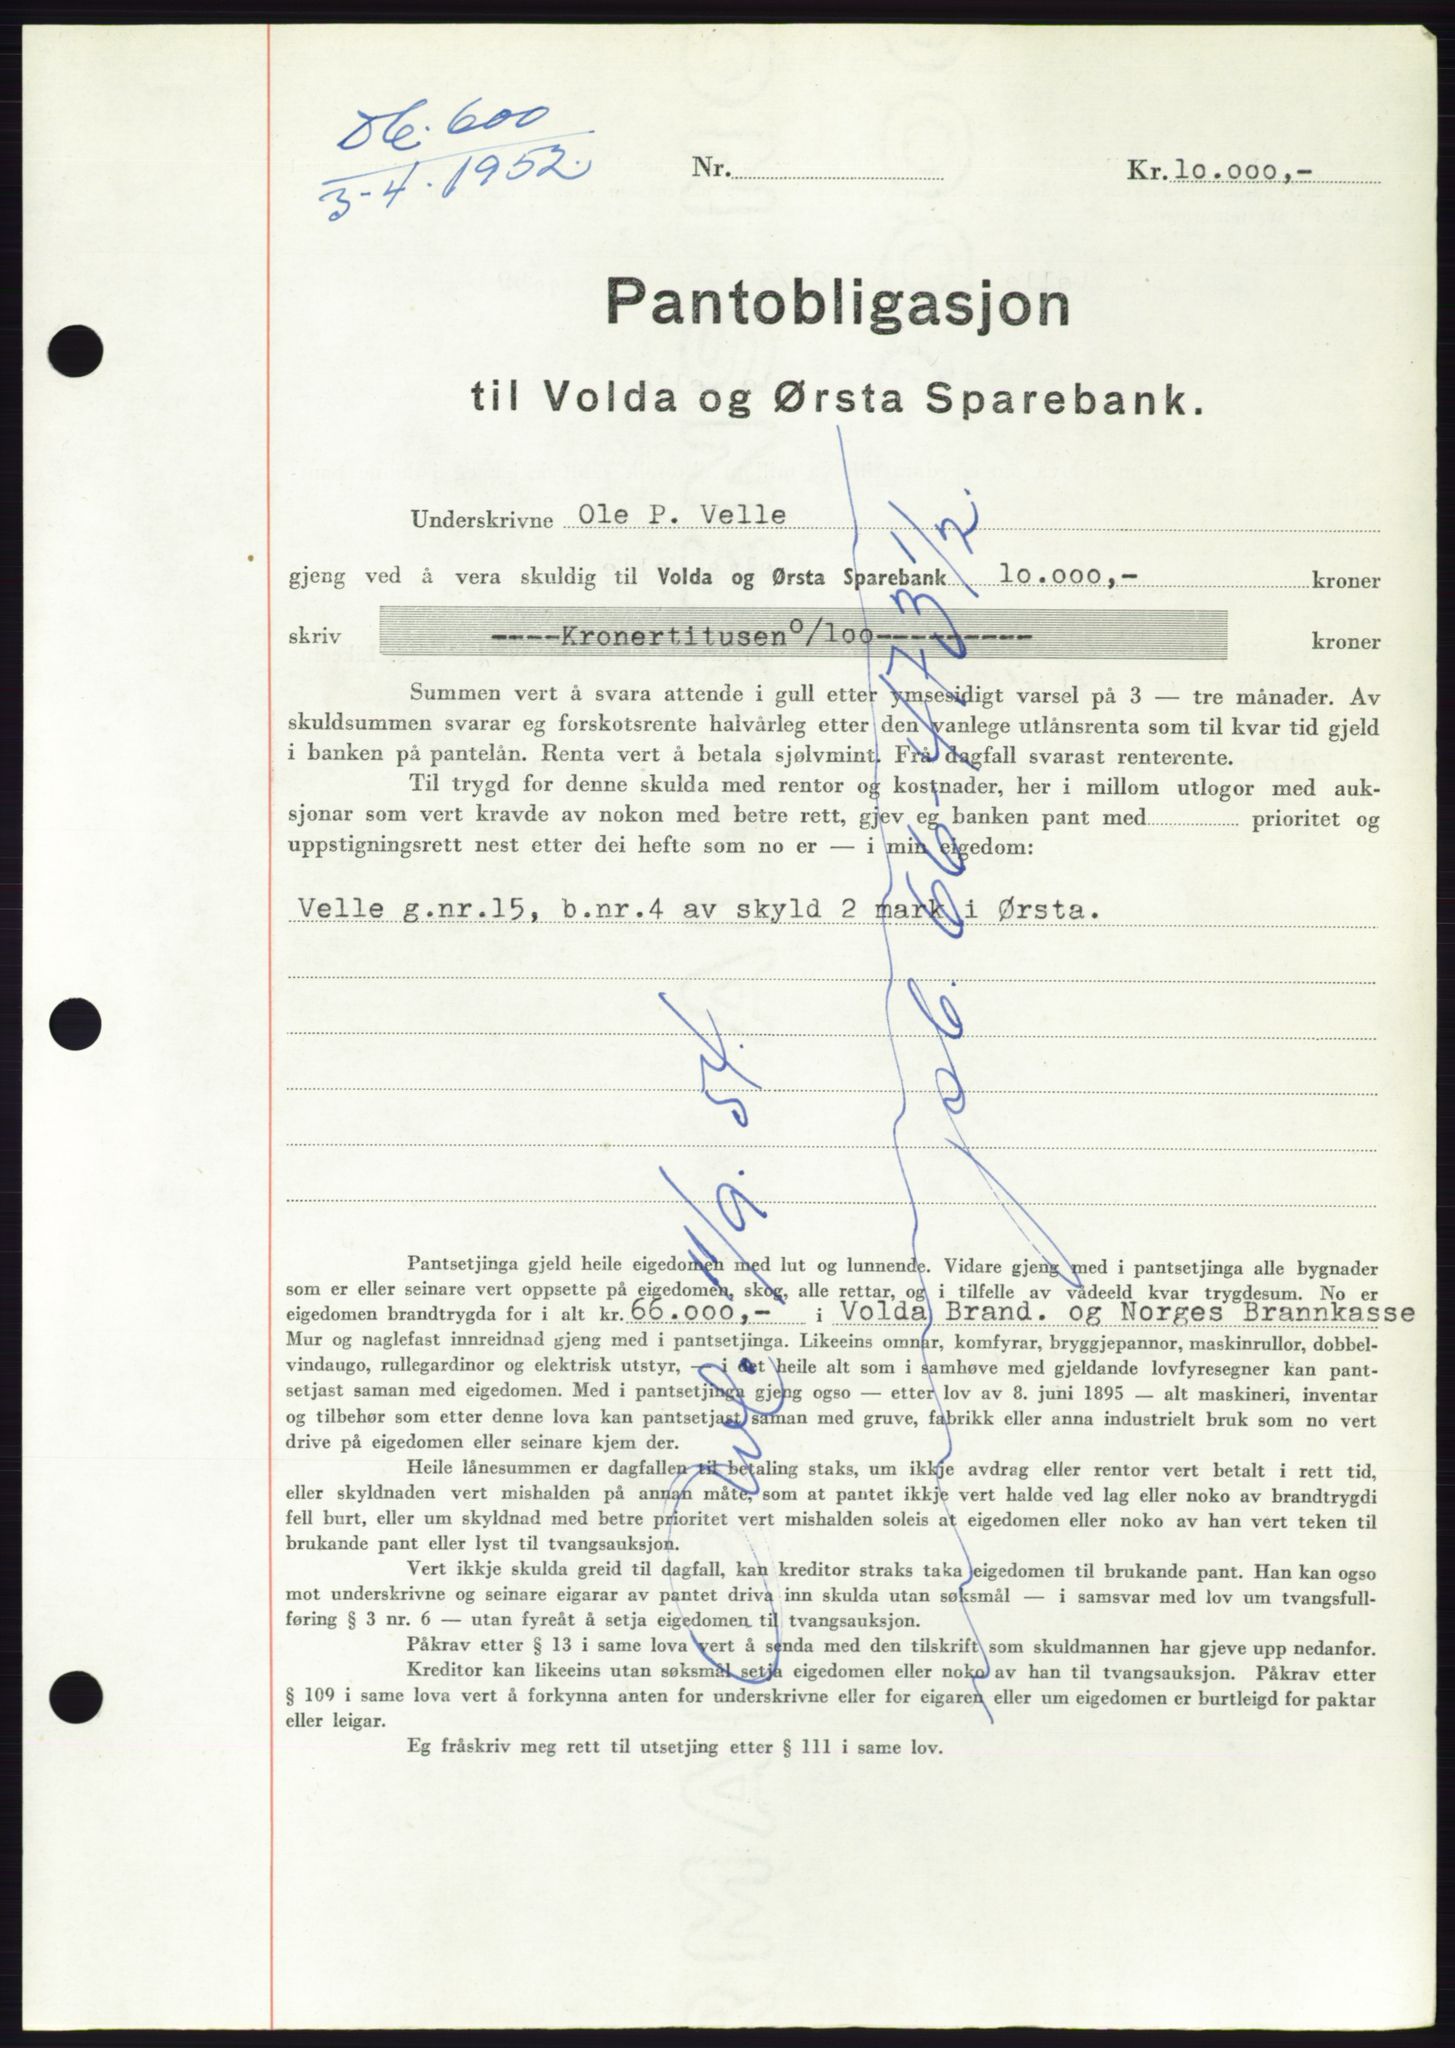 Db. 600
3-4.1952.
Nr. Kr. 10.000,-
Pantobligasjon
til Volda og Ørsta Sparebank.
Underskrivne Ole P. Velle
gjeng ved å vera skuldig til Volda og Ørsta Sparebank 10.000,- kroner
skriv ----Kronertitusen o/100--------- kroner
Summen vert å svara attende i gull etter ymsesidigt varsel på 3 — tre månader. Av
skuldsummen svarar eg forskotsrente halvårleg etter den vanlege utlånsrenta som til kvar tid gjeld
i banken på pantelån. Renta vert å betala sjølvmint. Frå dagfall svarast renterente.
Til trygd for denne skulda med rentor og kostnader, her i millom utlogor med auk-
sjonar som vert kravde av nokon med betre rett, gjev eg banken pant med prioritet og
uppstigningsrett nest etter dei hefte som no er — i min eigedom:
Velle g.nr.15, b.nr.4 av skyld 2 mark i Ørsta.
Pantsetjinga gjeld heile eigedomen med lut og lunnende. Vidare gjeng med i pantsetjinga alle bygnader
som er eller seinare vert oppsette på eigedomen, skog, alle rettar, og i tilfelle av vådeeld kvar trygdesum. No er
eigedomen brandtrygda for i alt kr. 66.000,- i Volda Brand. og Norges Brannkasse
Mur og naglefast innreidnad gjeng med i pantsetjinga. Likeeins omnar, komfyrar, bryggjepannor, maskinrullor, dobbel-
vindaugo, rullegardinor og elektrisk utstyr, — i det heile alt som i samhøve med gjeldande lovfyresegner kan pant-
setjast saman med eigedomen. Med i pantsetjinga gjeng ogso — etter lov av 8. juni 1895 — alt maskineri, inventar
og tilbehør som etter denne lova kan pantsetjast saman med gruve, fabrikk eller anna industrielt bruk som no vert
drive på eigedomen eller seinare kjem der.
Heile lånesummen er dagfallen til betaling staks, um ikkje avdrag eller rentor vert betalt i rett tid,
eller skyldnaden vert mishalden på annan måte, som at pantet ikkje vert halde ved lag eller noko av brandtrygdi
fell burt, eller um skyldnad med betre prioritet vert mishalden soleis at eigedomen eller noko av han vert teken til
brukande pant eller lyst til tvangsauksjon.
Vert ikkje skulda greid til dagfall, kan kreditor straks taka eigedomen til brukande pant. Han kan ogso
mot underskrivne og seinare eigarar av pantet driva inn skulda utan søksmål — i samsvar med lov um tvangsfull-
føring § 3 nr. 6 — utan fyreåt å setja eigedomen til tvangsauksjon.
Påkrav etter § 13 i same lova vert å senda med den tilskrift som skuldmannen har gjeve upp nedanfor.
Kreditor kan likeeins utan søksmål setja eigedomen eller noko av han til tvangsauksjon. Påkrav etter
§ 109 i same lova vert å forkynna anten for underskrivne eller for eigaren eller um eigedomen er burtleigd for paktar
eller leigar.
Eg fråskriv meg rett til utsetjing etter § 111 i same lov.
11/9. 54.